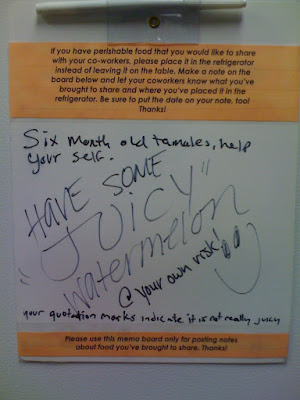 If you have perishable food that you would like to share
with your co-workers, please place it in the refrigerator
instead of leaving it on the table. Make a note on the
board below and let your coworkers know what you've
brought to share and where you've placed it in the
refrigerator. Be sure to put the date on your note, too!
Thanks!
Six month old tamales, help
your self.
HAVE SOME
"JUICY"
watermelon
@ your own risk!
your quotation marks indicate it is not really juicy
Please use this memo board only for posting notes
about food you've brought to share. Thanks!